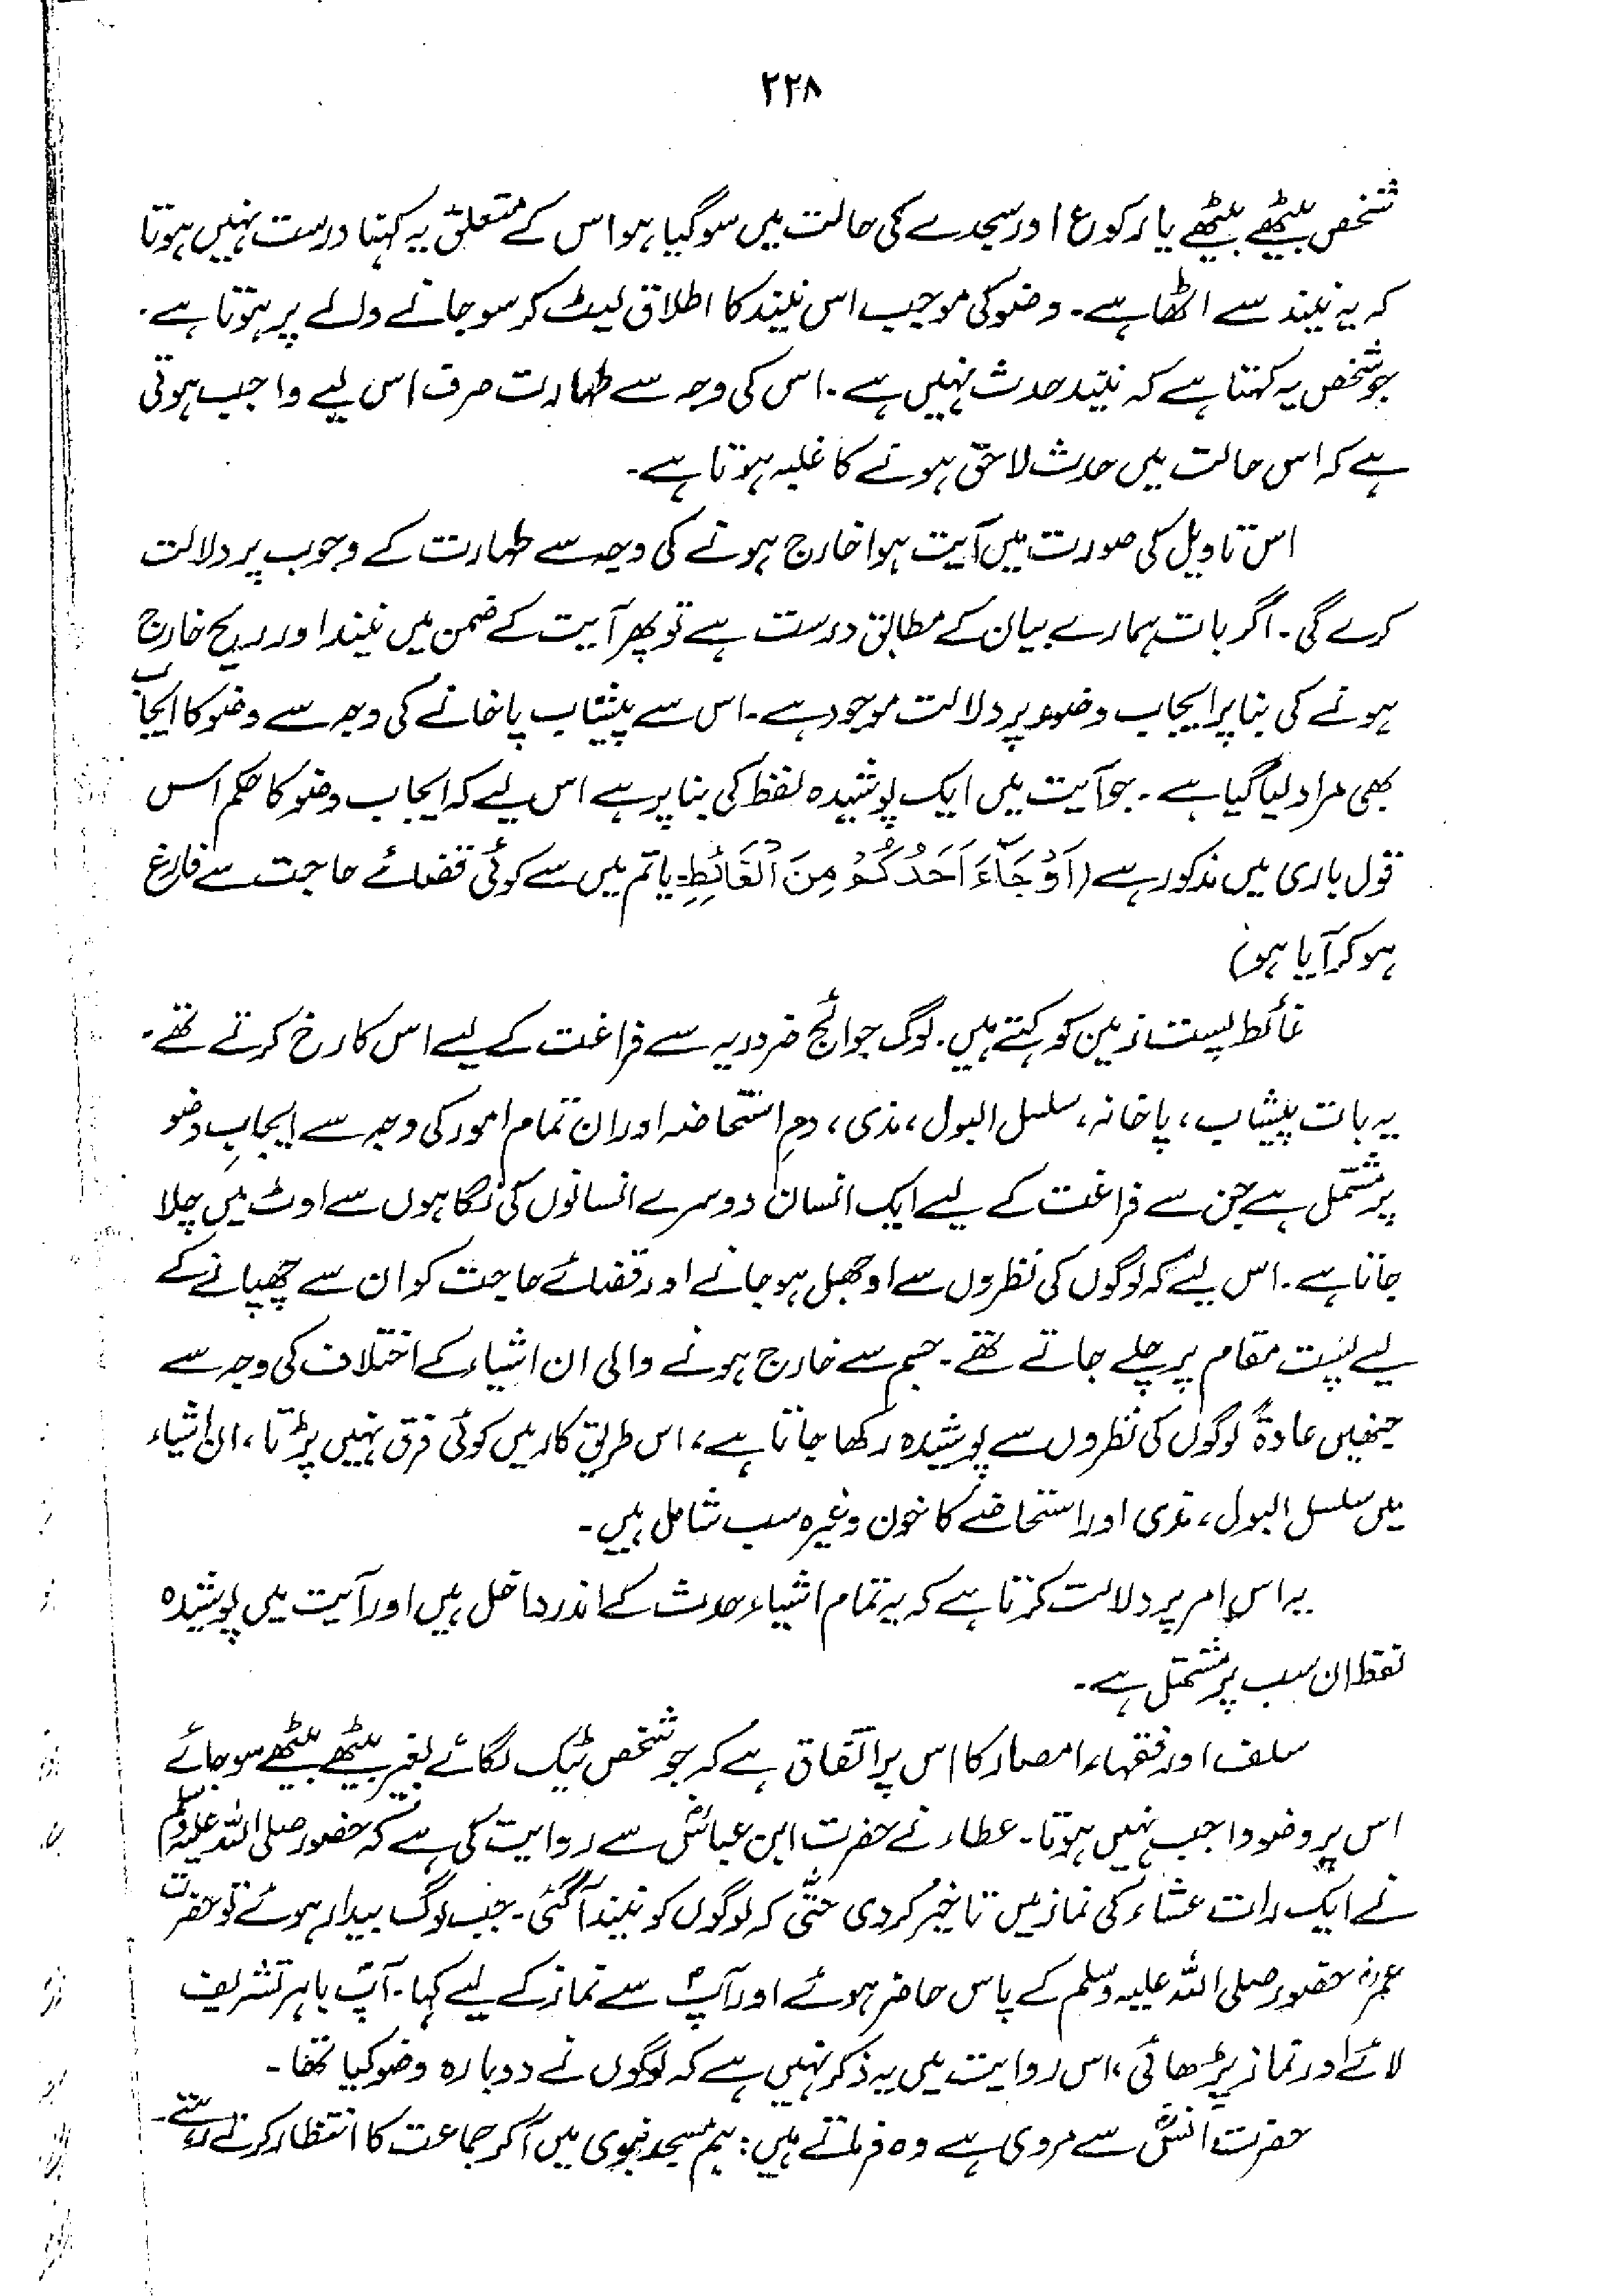 ۲۲۸
شخص بیٹھے بیٹھے یا رکوع اور سجدے کی حالت میں سو گیا ہو اس کے متعلق یہ کہنا درست نہیں ہوتا
کہ یہ نیند سے اٹھا ہے۔ وضو کی موجب اس نیند کا اطلاق لیٹ کر سو جانے والے پر ہوتا ہے۔
جو شخص یہ کہتا ہے کہ نیند حدث نہیں ہے۔ اس کی وجہ سے طہارت صرف اس لیے واجب ہوتی
ہے کہ اس حالت میں حدث لاحق ہونے کا غلبہ ہوتا ہے۔
اس تاویل کی صورت میں آیت ہوا خارج ہونے کی وجہ سے طہارت کے وجوب پر دلالت
کرے گی۔ اگر بات ہمارے بیان کے مطابق درست ہے تو پھر آیت کے ضمن میں نیند اور ریح خارج
ہونے کی بنا پر ایجاب وضوء پر دلالت موجود ہے۔ اس سے پیشاب پاخانے کی وجہ سے وضو کا ایجاب
بھی مراد لیا گیا ہے۔ جو آیت میں ایک پوشیدہ لفظ کی بنا پر ہے اس لیے کہ ایجاب وضو کا حکم اس
قول باری میں مذکور ہے (اَوْ جَآءَ اَحَدُكُمْ مِنَ الْغَائِطِ۔ یا تم میں سے کوئی قضائے حاجت سے فارغ
ہو کر آیا ہو)
غائط پست زمین کو کہتے ہیں۔ لوگ حوائج ضروریہ سے فراغت کے لیے اس کا رخ کرتے تھے۔
یہ بات پیشاب، پاخانہ، سلسل البول، مذی، دمِ استحاضہ اور ان تمام امور کی وجہ سے ایجابِ وضو
پر مشتمل ہے جن سے فراغت کے لیے ایک انسان دوسرے انسانوں کی نگاہوں سے اوٹ میں چلا
جاتا ہے۔ اس لیے کہ لوگوں کی نظروں سے اوجھل ہو جانے اور قضائے حاجت کو ان سے چھپانے کے
لیے پست مقام پر چلے جاتے تھے۔ جسم سے خارج ہونے والی ان اشیاء کے اختلاف کی وجہ سے
جنھیں عادۃً لوگوں کی نظروں سے پوشیدہ رکھا جاتا ہے، اس طریق کار میں کوئی فرق نہیں پڑتا، ان اشیاء
میں سلسل البول، مذی اور استحاضے کا خون وغیرہ سب شامل ہیں۔
یہ اس امر پر دلالت کرتا ہے کہ یہ تمام اشیاء حدث کے اندر داخل ہیں اور آیت میں پوشیدہ
لفظ ان سب پر مشتمل ہے۔
سلف اور فقہاء امصار کا اس پر اتفاق ہے کہ جو شخص ٹیک لگائے بغیر بیٹھے بیٹھے سو جائے
اس پر وضو واجب نہیں ہوتا۔ عطاء نے حضرت ابن عباسؓ سے روایت کی ہے کہ حضور صلی اللہ علیہ وسلم
نے ایک رات عشاء کی نماز میں تاخیر کردی حتّٰی کہ لوگوں کو نیند آ گئی۔ جب لوگ بیدار ہوئے تو حضرت
عمرؓ حضور صلی اللہ علیہ وسلم کے پاس حاضر ہوئے اور آپؐ سے نماز کے لیے کہا۔ آپؐ باہر تشریف
لائے اور نماز پڑھائی، اس روایت میں یہ ذکر نہیں ہے کہ لوگوں نے دوبارہ وضو کیا تھا۔
حضرت انسؓ سے مروی ہے وہ فرماتے ہیں: ہم مسجد نبوی میں آکر جماعت کا انتظار کرتے رہتے۔